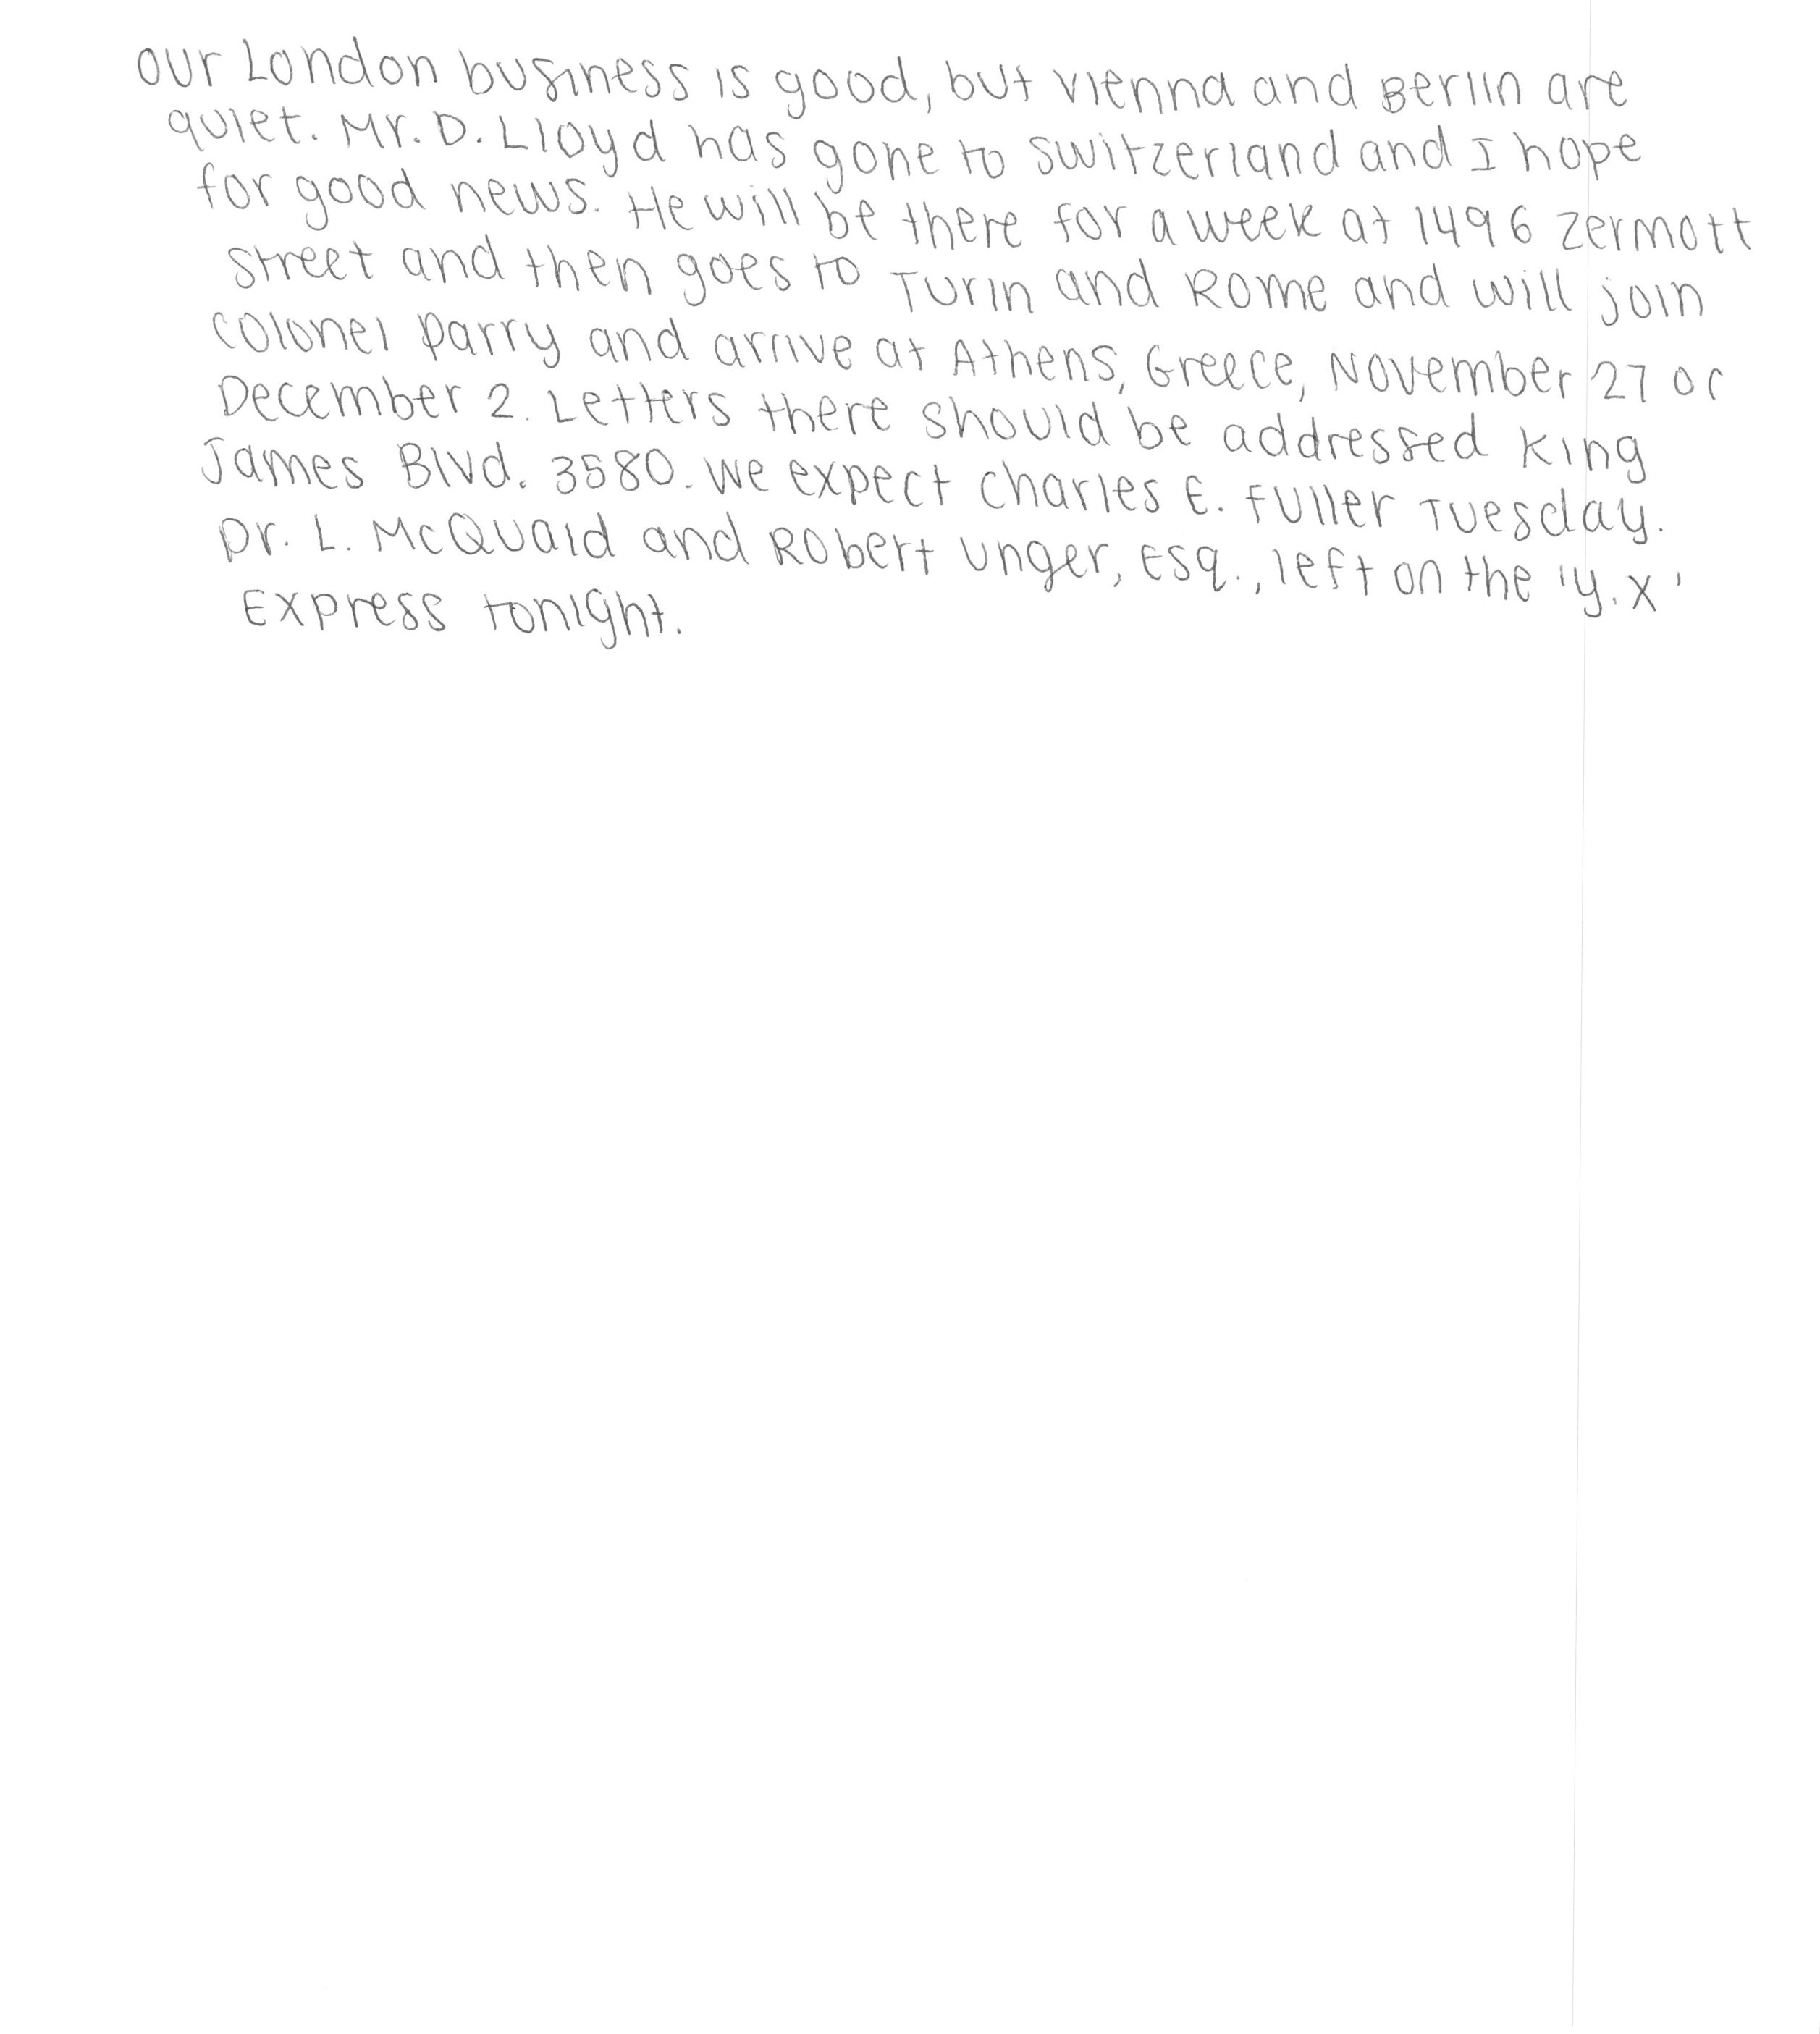 Our London business is good, but Vienna and Berlin are
quiet. Mr. D. Lloyd has gone to Switzerland and I hope
for good news. He will be there for a week at 1496 Zermott
Street and then goes to Turin and Rome and will join
Colonel Parry and arrive at Athens, Greece, November 27 or
December 2. Letters there should be addressed King
James Blvd. 3580. We expect Charles E. Fuller Tuesday.
Dr. L. McQuaid and Robert Unger, Esq., left on the 'Y.X'
Express tonight.